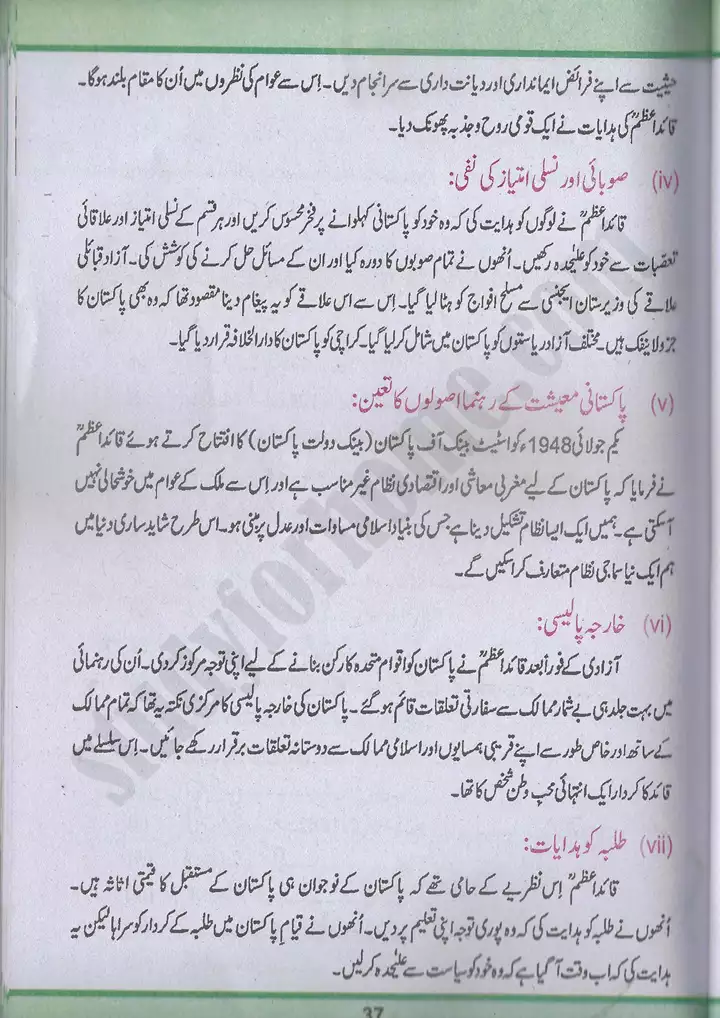 حیثیت سے اپنے فرائض ایمانداری اور دیانت داری سے سرانجام دیں۔ اِس سے عوام کی نظروں میں اُن کا مقام بلند ہوگا۔
قائداعظمؒ کی ہدایات نے ایک قومی روح و جذبہ پھونک دیا۔
(iv) صوبائی اور نسلی امتیاز کی نفی:
قائداعظمؒ نے لوگوں کو ہدایت کی کہ وہ خود کو پاکستانی کہلوانے پر فخر محسوس کریں اور ہر قسم کے نسلی امتیاز اور علاقائی
تعصبات سے خود کو علیٰحدہ رکھیں۔ اُنھوں نے تمام صوبوں کا دورہ کیا اور ان کے مسائل حل کرنے کی کوشش کی۔ آزاد قبائلی
علاقے کی وزیرستان ایجنسی سے مسلح افواج کو ہٹا لیا گیا۔ اِس سے اس علاقے کو یہ پیغام دینا مقصود تھا کہ وہ بھی پاکستان کا
جزو لاینفک ہیں۔ مختلف آزاد ریاستوں کو پاکستان میں شامل کر لیا گیا۔ کراچی کو پاکستان کا دارالخلافہ قرار دیا گیا۔
(v) پاکستانی معیشت کے رہنما اصولوں کا تعین:
یکم جولائی 1948ء کو اسٹیٹ بینک آف پاکستان (بینک دولت پاکستان) کا افتتاح کرتے ہوئے قائداعظمؒ
نے فرمایا کہ پاکستان کے لیے مغربی معاشی اور اقتصادی نظام غیر مناسب ہے اور اِس سے ملک کے عوام میں خوشحالی نہیں
آ سکتی ہے۔ ہمیں ایک ایسا نظام تشکیل دینا ہے جس کی بنیاد اسلامی مساوات اور عدل پر مبنی ہو۔ اس طرح شاید ساری دنیا میں
ہم ایک نیا سماجی نظام متعارف کرا سکیں گے۔
(vi) خارجہ پالیسی:
آزادی کے فوراً بعد قائداعظمؒ نے پاکستان کو اقوام متحدہ کا رکن بنانے کے لیے اپنی توجہ مرکوز کر دی۔ اُن کی رہنمائی
میں بہت جلد ہی بے شمار ممالک سے سفارتی تعلقات قائم ہو گئے۔ پاکستان کی خارجہ پالیسی کا مرکزی نکتہ یہ تھا کہ تمام ممالک
کے ساتھ اور خاص طور سے اپنے قریبی ہمسایوں اور اسلامی ممالک سے دوستانہ تعلقات برقرار رکھے جائیں۔ اِس سلسلے میں
قائد کا کردار ایک انتہائی محبِ وطن شخص کا تھا۔
(vii) طلبہ کو ہدایات:
قائداعظمؒ اِس نظریے کے حامی تھے کہ پاکستان کے نوجوان ہی پاکستان کے مستقبل کا قیمتی اثاثہ ہیں۔
اُنھوں نے طلبہ کو ہدایت کی کہ وہ پوری توجہ اپنی تعلیم پر دیں۔ اُنھوں نے قیامِ پاکستان میں طلبہ کے کردار کو سراہا لیکن یہ
ہدایت کی کہ اب وقت آ گیا ہے کہ وہ خود کو سیاست سے علیٰحدہ کر لیں۔
37
studyforhome.com